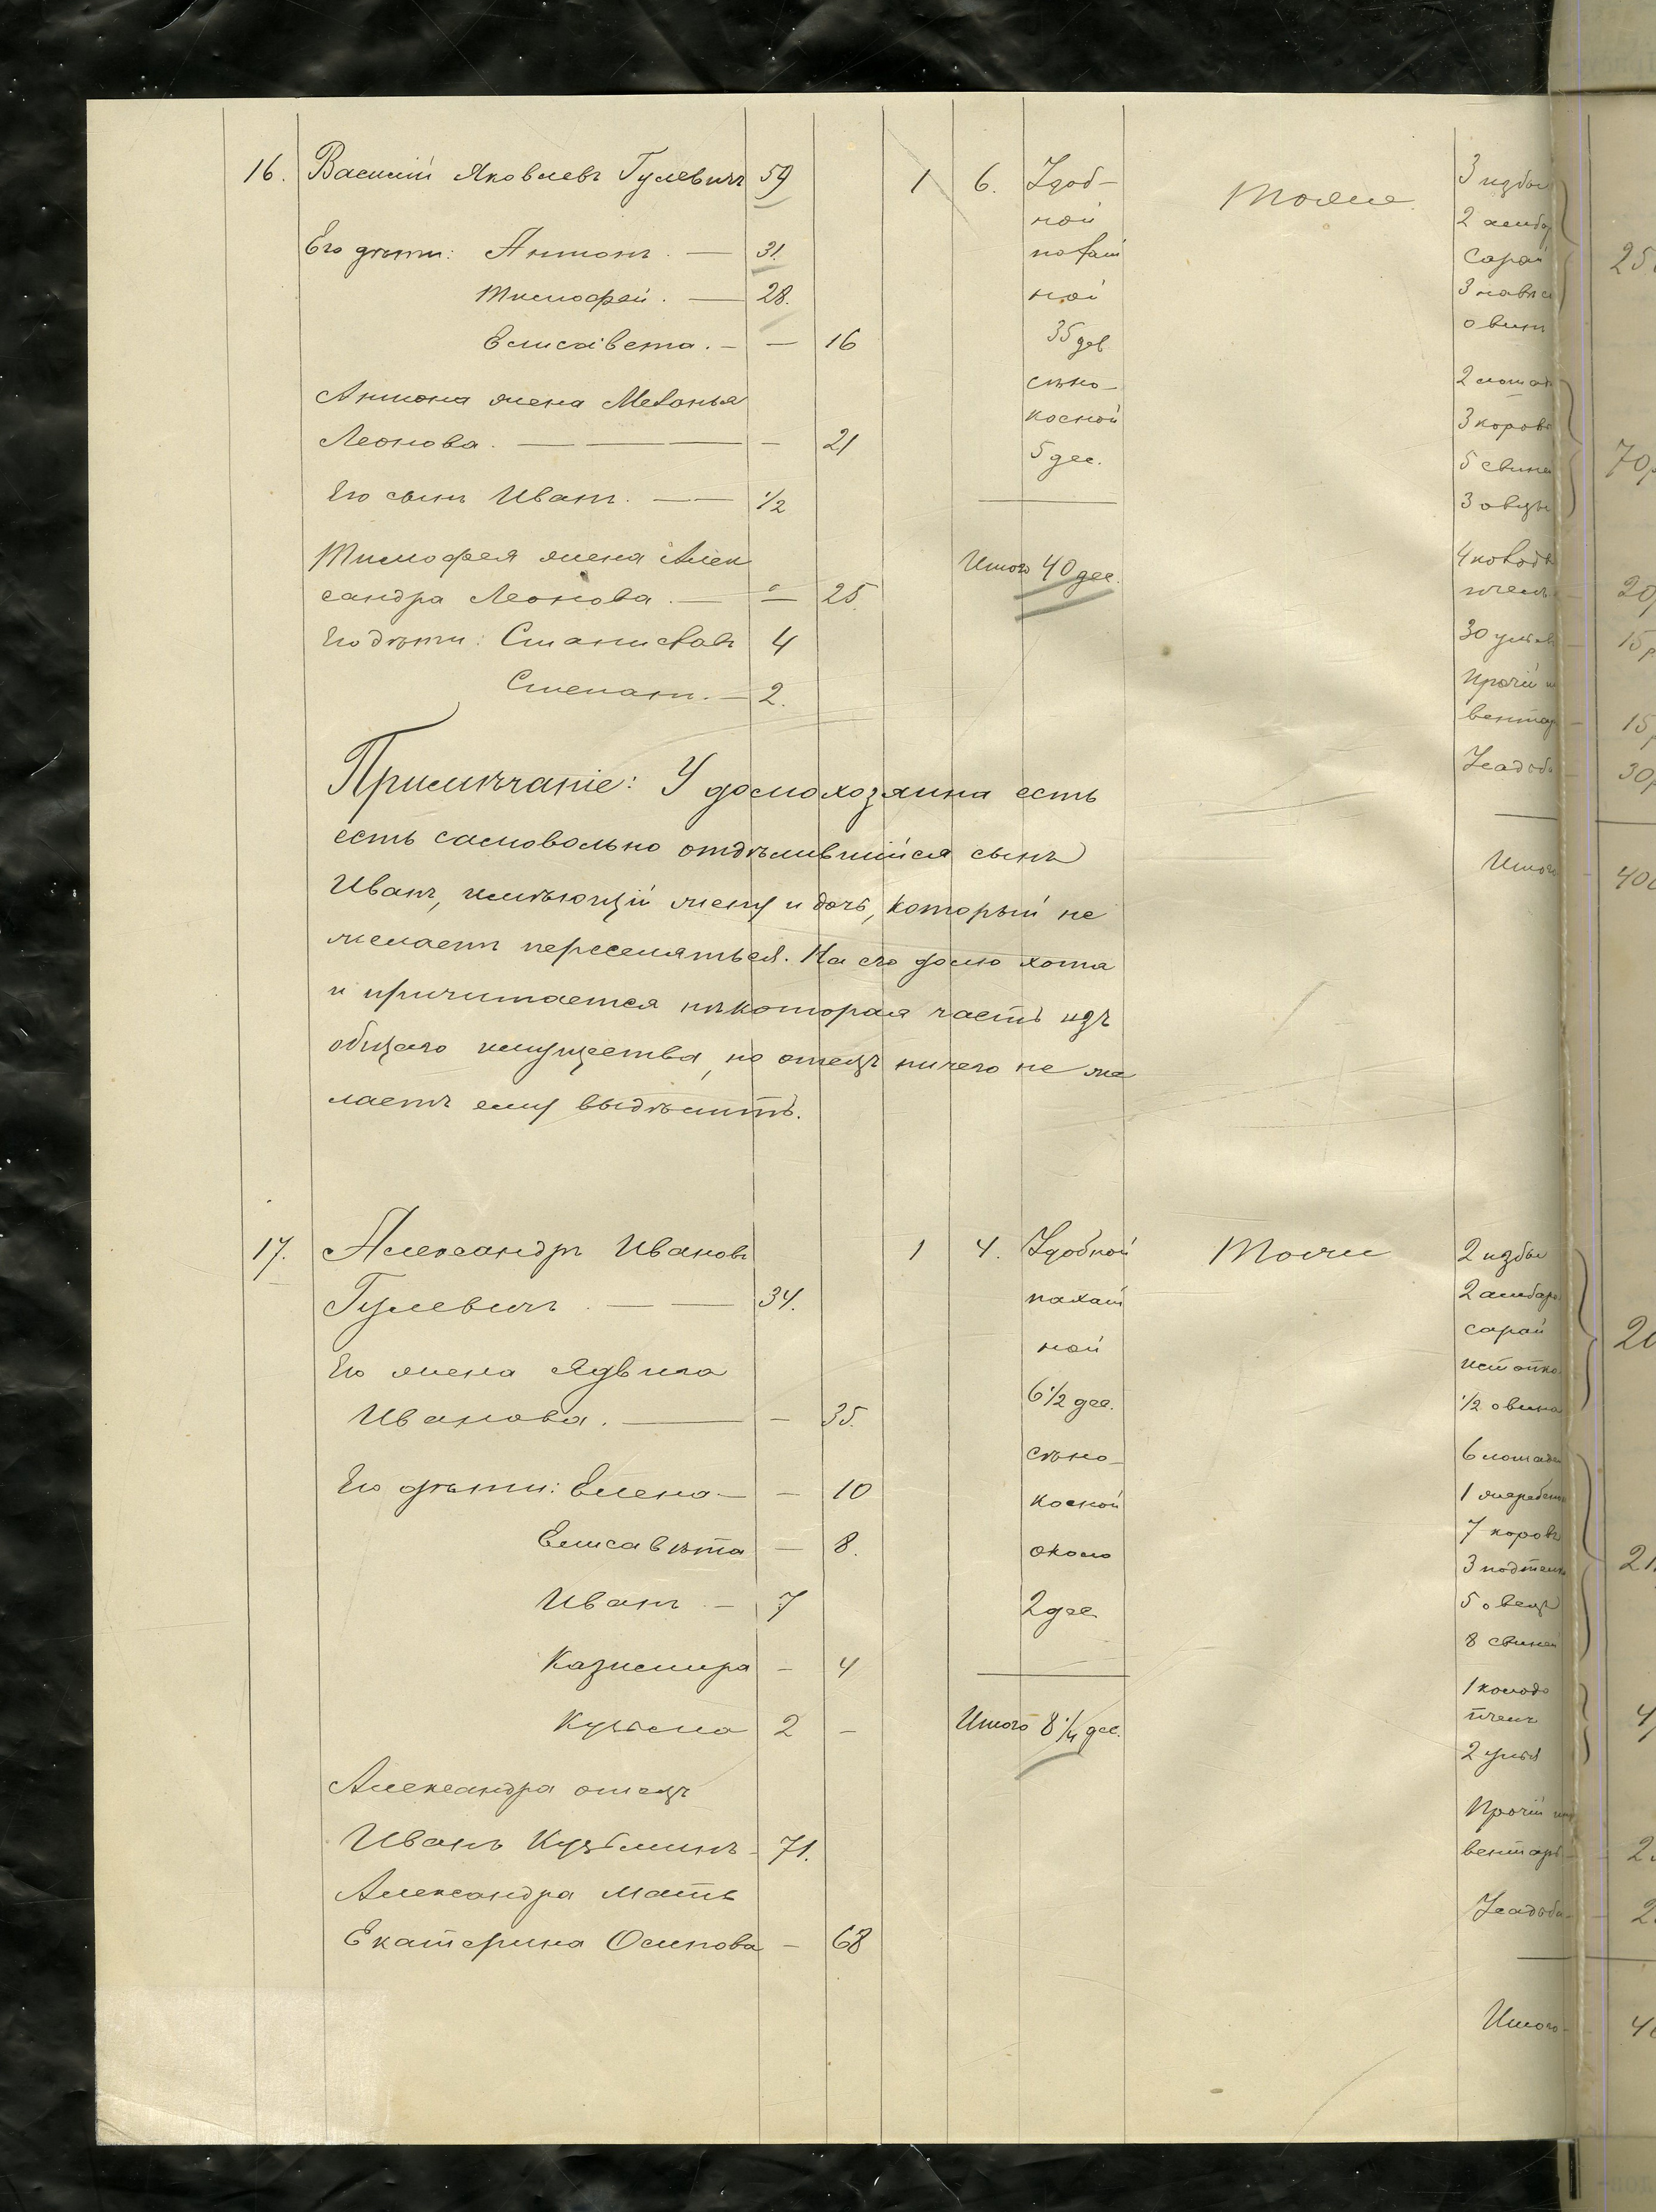 16. Василій Яковлевъ Гулевичъ 59
Его дѣти: Антонъ. — 31.
Тимофей. — 28.
Елисавета. — — 16
Антона жена Меланья
Леонова. — — — — 21
Его сынъ Иванъ. — — 1/2
Тимофея жена Алек
сандра Леонова. — — 25
Его дѣти: Станиславъ 4
Степанъ. — 2.
1 6. Удоб-
ной
пахат
ной
35 дес
сѣно-
косной
5 дес.
Итого 40 дес.
Тоже.
3 избы
2 амбар
Сарай
3 навѣса
овинъ
2 лошад
3 коровы
5 свиней
3 овцы
4 колоды
пчелъ — 20
30 ульевъ — 15 р
Прочій ин
вентар — 15 р
Усадьба — 30 р
Итого — 400
25
70 р
Примѣчаніе: У домохозяина есть
есть самовольно отдѣлившійся сынъ
Иванъ, имѣющій жену и дочь, который не
желаетъ переселяться. На его долю хотя
и причитается нѣкоторая часть изъ
общаго имущества, но отецъ ничего не же
лаетъ ему выдѣлить.
17. Александръ Ивановъ
Гулевичъ — — 34.
Его жена Ядвига
Иванова. — — 35.
Его дѣти: Елена — — 10
Елисавѣта — 8.
Иванъ — 7
Казимира — 4
Кузьма 2 —
Александра отецъ
Иванъ Кузьминъ 71.
Александра мать
Екатерина Осипова — 68
1 4. Удобной
пахат
ной
6 1/2 дес.
сѣно-
косной
около
2 дес
Итого 8 1/4 дес.
Тоже
2 избы
2 амбара
сарай
истопка
1/2 овина
6 лошадей
1 жеребенок
7 коровъ
3 подтелка
5 овецъ
8 свиней
1 колода
пчелъ
2 улья
Прочій ин
вентарь — 2
Усадьба — 2
Итого — 4
20
21
4